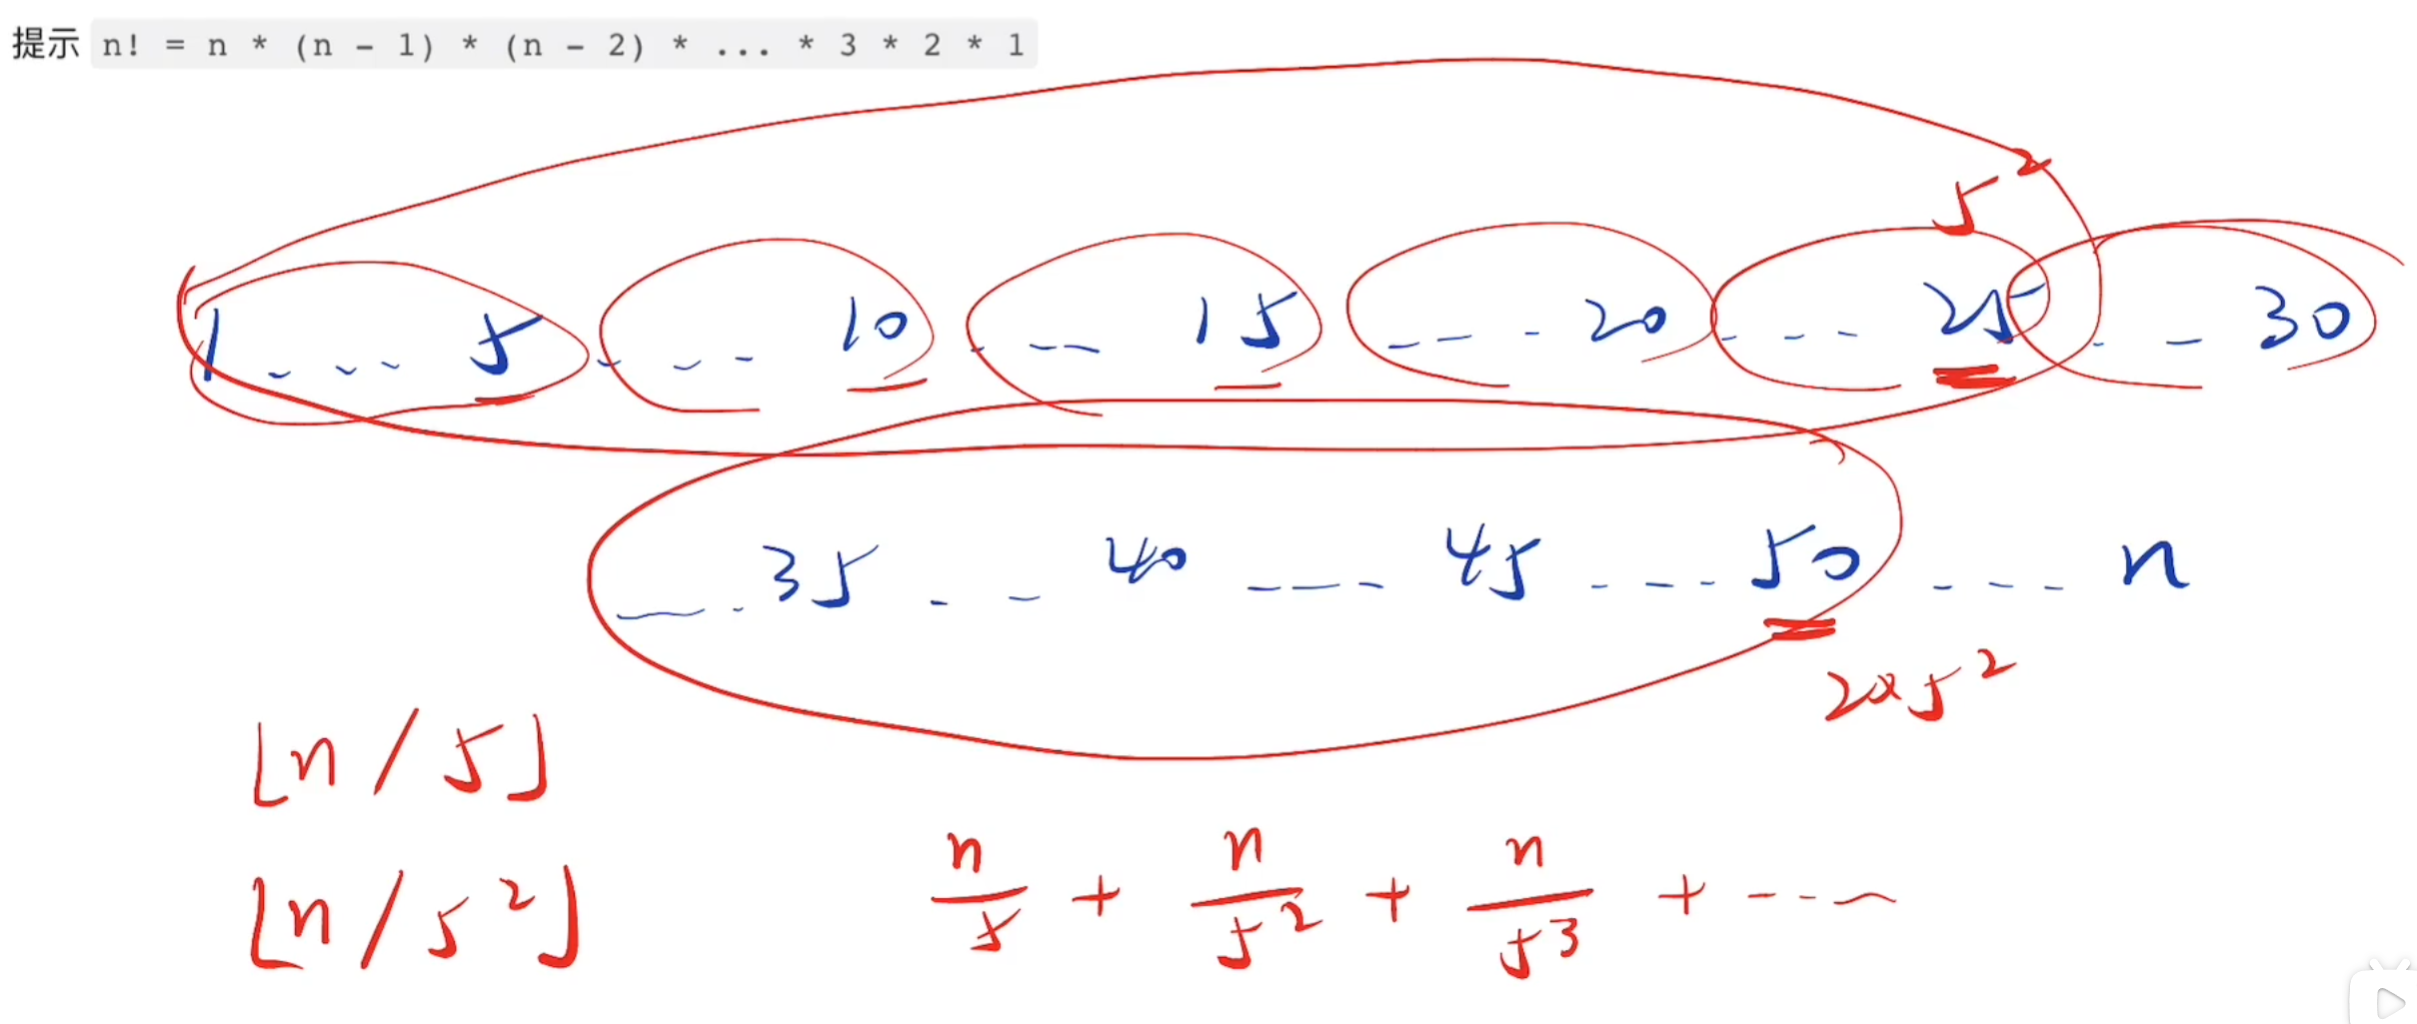 提示 n! = n * (n - 1) * (n - 2) * ... * 3 * 2 * 1
5²
1 --- 5 ---- 10 ---- 15 --- - 20 --- 25 -- 30
---. 35 -- 40 ---- 45 ---- 50 --- n
2×5²
⌊n/5⌋
⌊n/5²⌋
n/5 + n/5² + n/5³ + ----